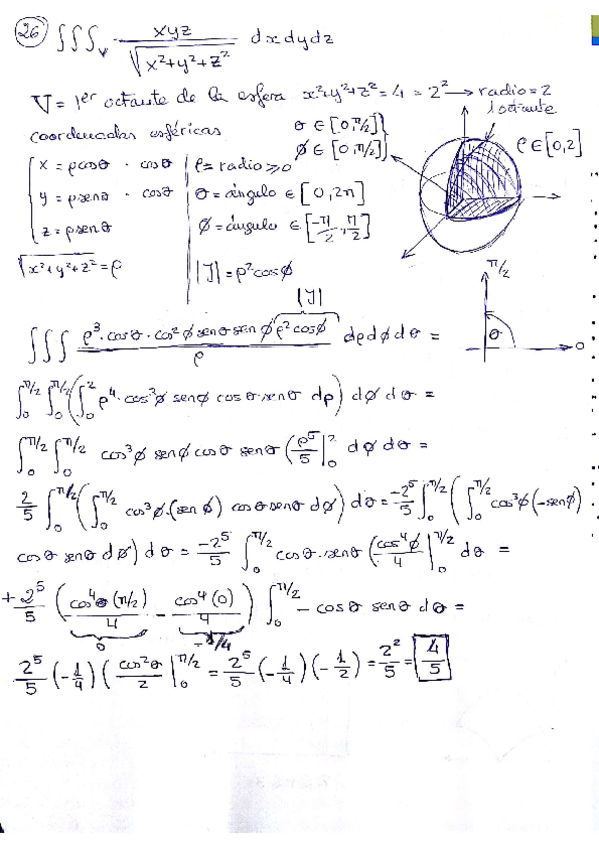 26 ∫∫∫_V xyz / √(x²+y²+z²) dxdydz
V = 1er octante de la esfera x²+y²+z² = 4 = 2² → radio = 2
1 octante
coordenadas esféricas θ ∈ [0, π/2]
ϕ ∈ [0, π/2] ρ ∈ [0,2]
x = ρcosθ · cosθ ρ = radio ≥ 0
y = ρsenθ · cosθ θ = ángulo ∈ [0, 2π]
z = ρsenθ ϕ = ángulo ∈ [-π/2, π/2]
√(x²+y²+z²) = ρ |J| = ρ²cosϕ
π/2
θ
0
|J|
∫∫∫ ρ³·cosθ·cos²ϕ senθ senϕ ρ²cosϕ / ρ dρ dϕ dθ =
∫₀^π/2 ∫₀^π/2 (∫₀² ρ⁴·cos³ϕ senϕ cosθ·senθ dρ) dϕ dθ =
∫₀^π/2 ∫₀^π/2 cos³ϕ senϕ cosθ senθ (ρ⁵/5 |₀² dϕ dθ =
2/5 ∫₀^π/2 (∫₀^π/2 cos³ϕ·(senϕ) cosθ senθ dϕ) dθ = -2⁵/5 ∫₀^π/2 (∫₀^π/2 cos³ϕ(-senϕ)
cosθ senθ dϕ) dθ = -2⁵/5 ∫₀^π/2 cosθ·senθ (cos⁴ϕ/4 |₀^π/2 dθ =
+2⁵/5 (cos⁴(π/2)/4 - cos⁴(0)/4) ∫₀^π/2 - cosθ senθ dθ =
0 -1/4
2⁵/5 (-1/4) (cos²θ/2 |₀^π/2 = 2⁵/5 (-1/4)(-1/2) = 2²/5 = 4/5